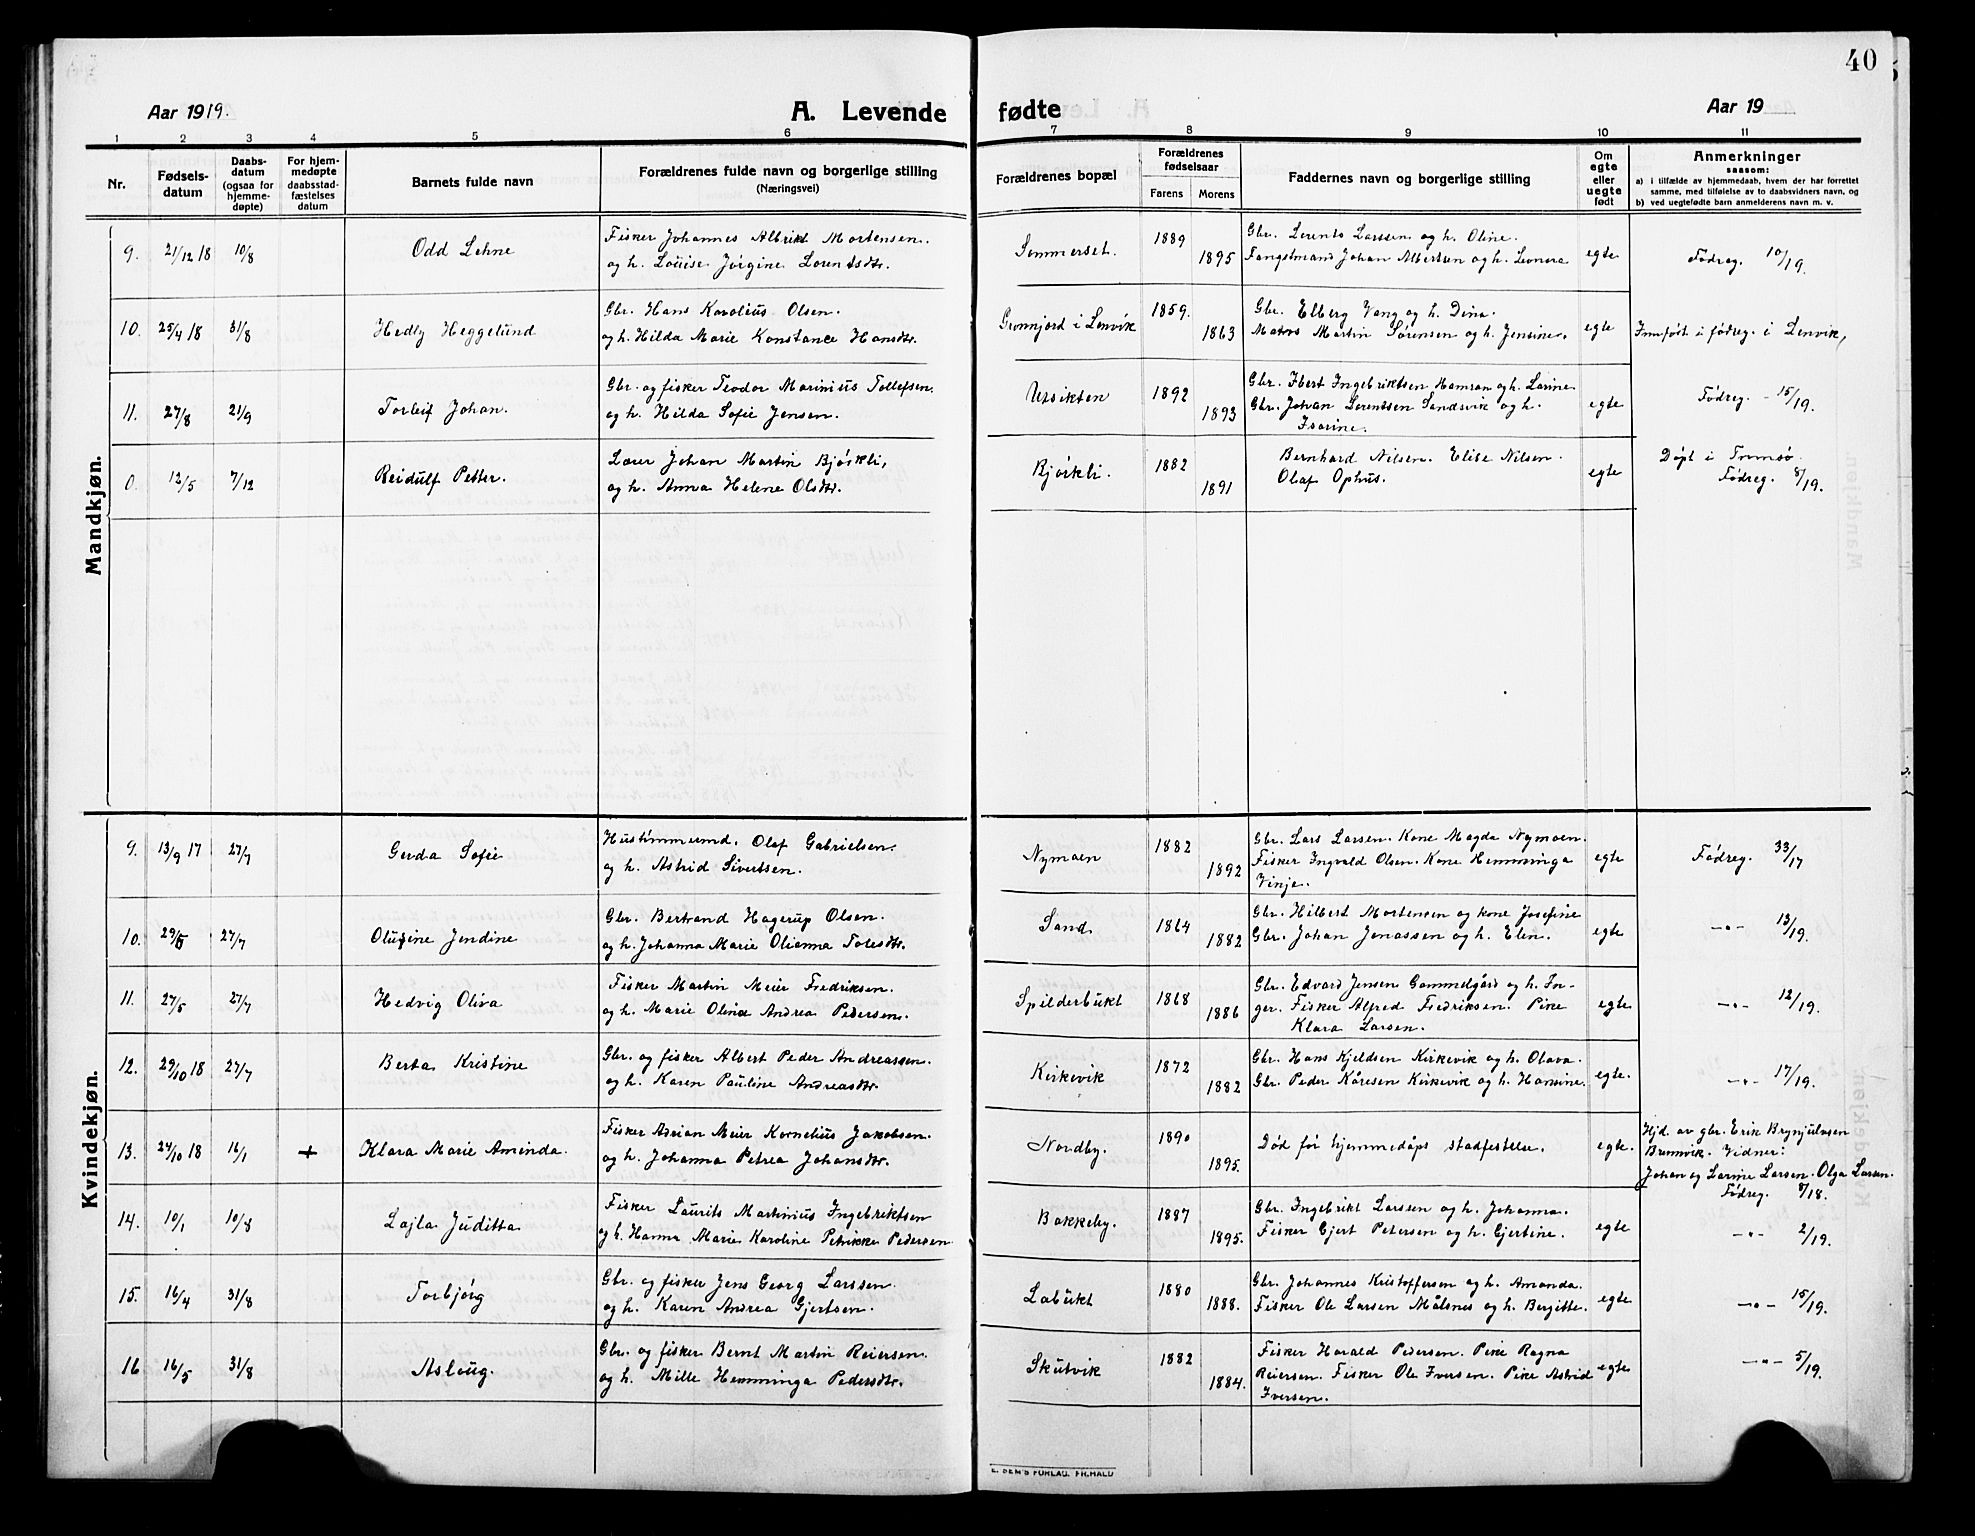 40
Aar 1919.
A. Levende fødte
Aar 19
1 2 3 4 5 6 7 8 9 10 11
Nr.
Fødsels-
datum
Daabs-
datum
(ogsaa for
hjemme-
døpte)
For hjem-
medøpte
daabsstad-
fæstelses
datum
Barnets fulde navn
Forældrenes fulde navn og borgerlige stilling
(Næringsvei)
Forældrenes bopæl
Forældrenes
fødselsaar
Farens Morens
Faddernes navn og borgerlige stilling
Om
egte
eller
uegte
født
Anmerkninger
saasom:
a) i tilfælde av hjemmedaab, hvem der har forrettet
samme, med tilføielse av to daabsvidners navn, og
b) ved uegtefødte barn anmelderens navn m. v.
Mandkjøn.
9. 21/12 18 10/8 Odd Lehne
Fisker Johannes Albrikt Mortensen.
og h. Louise Jørgine Lorentsdtr.
Sommerset. 1889 1895
Gbr. Lorents Larssen og h. Oline.
Fangstmand Johan Albertsen og h. Leonora
egte Fødreg. 10/19.
10. 25/4 18 31/8 Hedly Heggelund
Gbr. Hans Karolius Olsen.
og h. Hilda Marie Konstance Hansdtr.
Grønnjord i Lenvik 1859. 1863
Gbr. Elberg Vang og h. Dina.
Matros Martin Sørensen og h. Jensine.
egte Innført i fødreg. i Lenvik,
11. 27/8 21/9 Torleif Johan.
Gbr. og fisker Teodor Marinius Tollefsen.
og h. Hilda Sofie Jensen.
Ursikten 1892 1893
Gbr. Ibert Ingebriktsen Hamran og h. Larine.
Gbr. Johan Lorentsen Sandsvik og h.
Isarine.
egte Fødreg. - 15/19.
0. 12/5 7/12 Reidulf Petter.
Lærer Johan Martin Bjørkli,
og h. Anna Helene Olsdtr.
Bjørkli. 1882 1891
Bernhard Nilsen. Elise Nilsen.
Olaf Ophus.
egte Døpt i Tromsø.
Fødreg. 8/19.
Kvindekjøn.
9. 13/9 17 27/7 Gerda Sofie
Hustømmermd. Olaf Gabrielsen.
og h. Astrid Sivertsen.
Nymoen 1882 1892
Gbr. Lars Larsen. Kone Magda Nymoen.
Fisker Ingvald Olsen. Kone Hemminga
Vinje.
egte Fødreg. 33/17
10. 29/5 27/7 Olufine Jendine
Gbr. Bertrand Hagerup Olsen.
og h. Johanna Marie Olianna Tolesdtr.
Sand. 1864 1882
Gbr. Hilbert Mortensen og kone Josefine
Gbr. Johan Jonassen og h. Elen.
egte —"— 13/19.
11. 27/5 27/7 Hedvig Oliva
Fisker Martin Meier Fredriksen.
og h. Marie Oline Andrea Pedersen.
Spilderbukt 1868 1886
Gbr. Edvard Jensen Gammelgård og h. In-
ger. Fisker Alfred Fredriksen. Pike
Klara Larsen.
egte —"— 12/19.
12. 29/10 18 27/7 Berta Kristine
Gbr. og fisker Albert Peder Andreassen.
og h. Karen Pauline Andreasdtr.
Kirkevik 1872 1882
Gbr. Hans Kjeldsen Kirkevik og h. Olava.
Gbr. Peder Kåresen Kirkevik og h. Hansine.
egte. —"— 17/19.
13. 24/10 18 16/1 + Klara Marie Aminda.
Fisker Adrian Meier Kornelius Jakobsen.
og h. Johanna Petrea Johansdtr.
Nordby. 1890 1895.
Død før hjemmedåps stadfestelse.
egte. Hjd. av gbr. Erik Brynjulvsen
Brunvik. Vidner:
Johan og Larine Larsen. Olga Larsen.
Fødreg. 8/18.
14. 10/1 10/8 Lajla Juditta
Fisker Laurits Martinius Ingebriktsen
og h. Hanna Marie Karoline Petrikke Pedersen.
Bakkeby. 1887 1895.
Gbr. Ingebrikt Larssen og h. Johanna.
Fisker Gjert Petersen og h. Gjertine.
egte —"— 2/19.
15. 16/4 31/8 Torbjørg
Gbr. og fisker Jens Georg Larssen.
og h. Karen Andrea Gjertsen.
Labukt 1880 1888.
Gbr. Johannes Kristoffersen og h. Amanda.
Fisker Ole Larsen Målsnes og h. Bergitte.
egte —"— 15/19.
16 16/5 31/8 Aslaug.
Gbr. og fisker Bernt Martin Reiersen.
og h. Mille Hemminga Pedersdtr.
Skutvik 1882 1884.
Fisker Harald Pedersen. Pike Ragna
Reiersen. Fisker Ole Iversen. Pike Astrid
Iversen.
egte —"— 5/19.